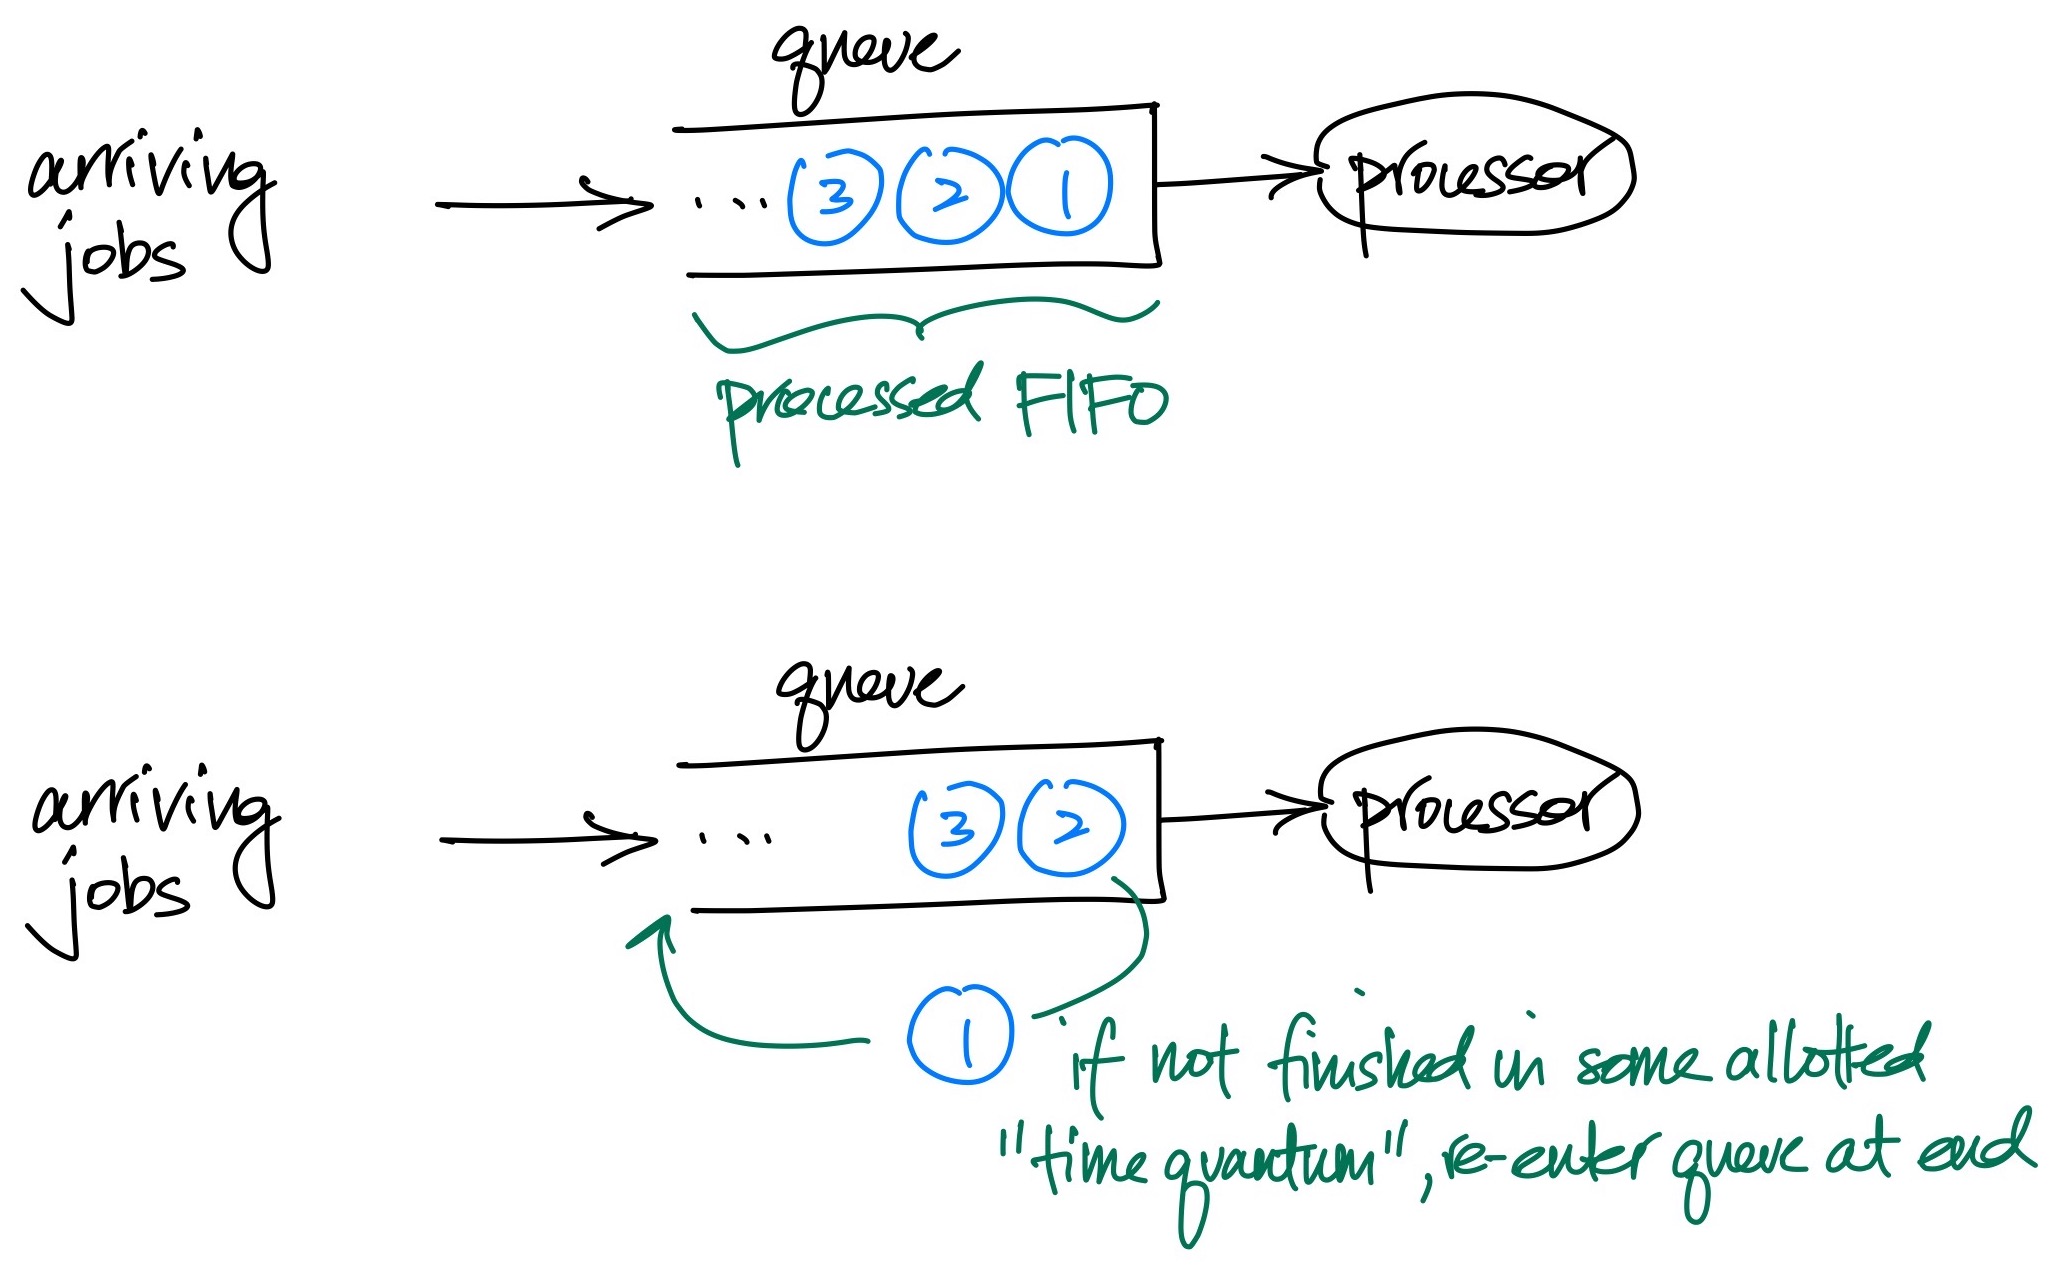 queue
arriving
jobs
... 3 2 1
processor
processed FIFO
queue
arriving
jobs
... 3 2
processor
1
if not finished in some allotted
"time quantum", re-enter queue at end